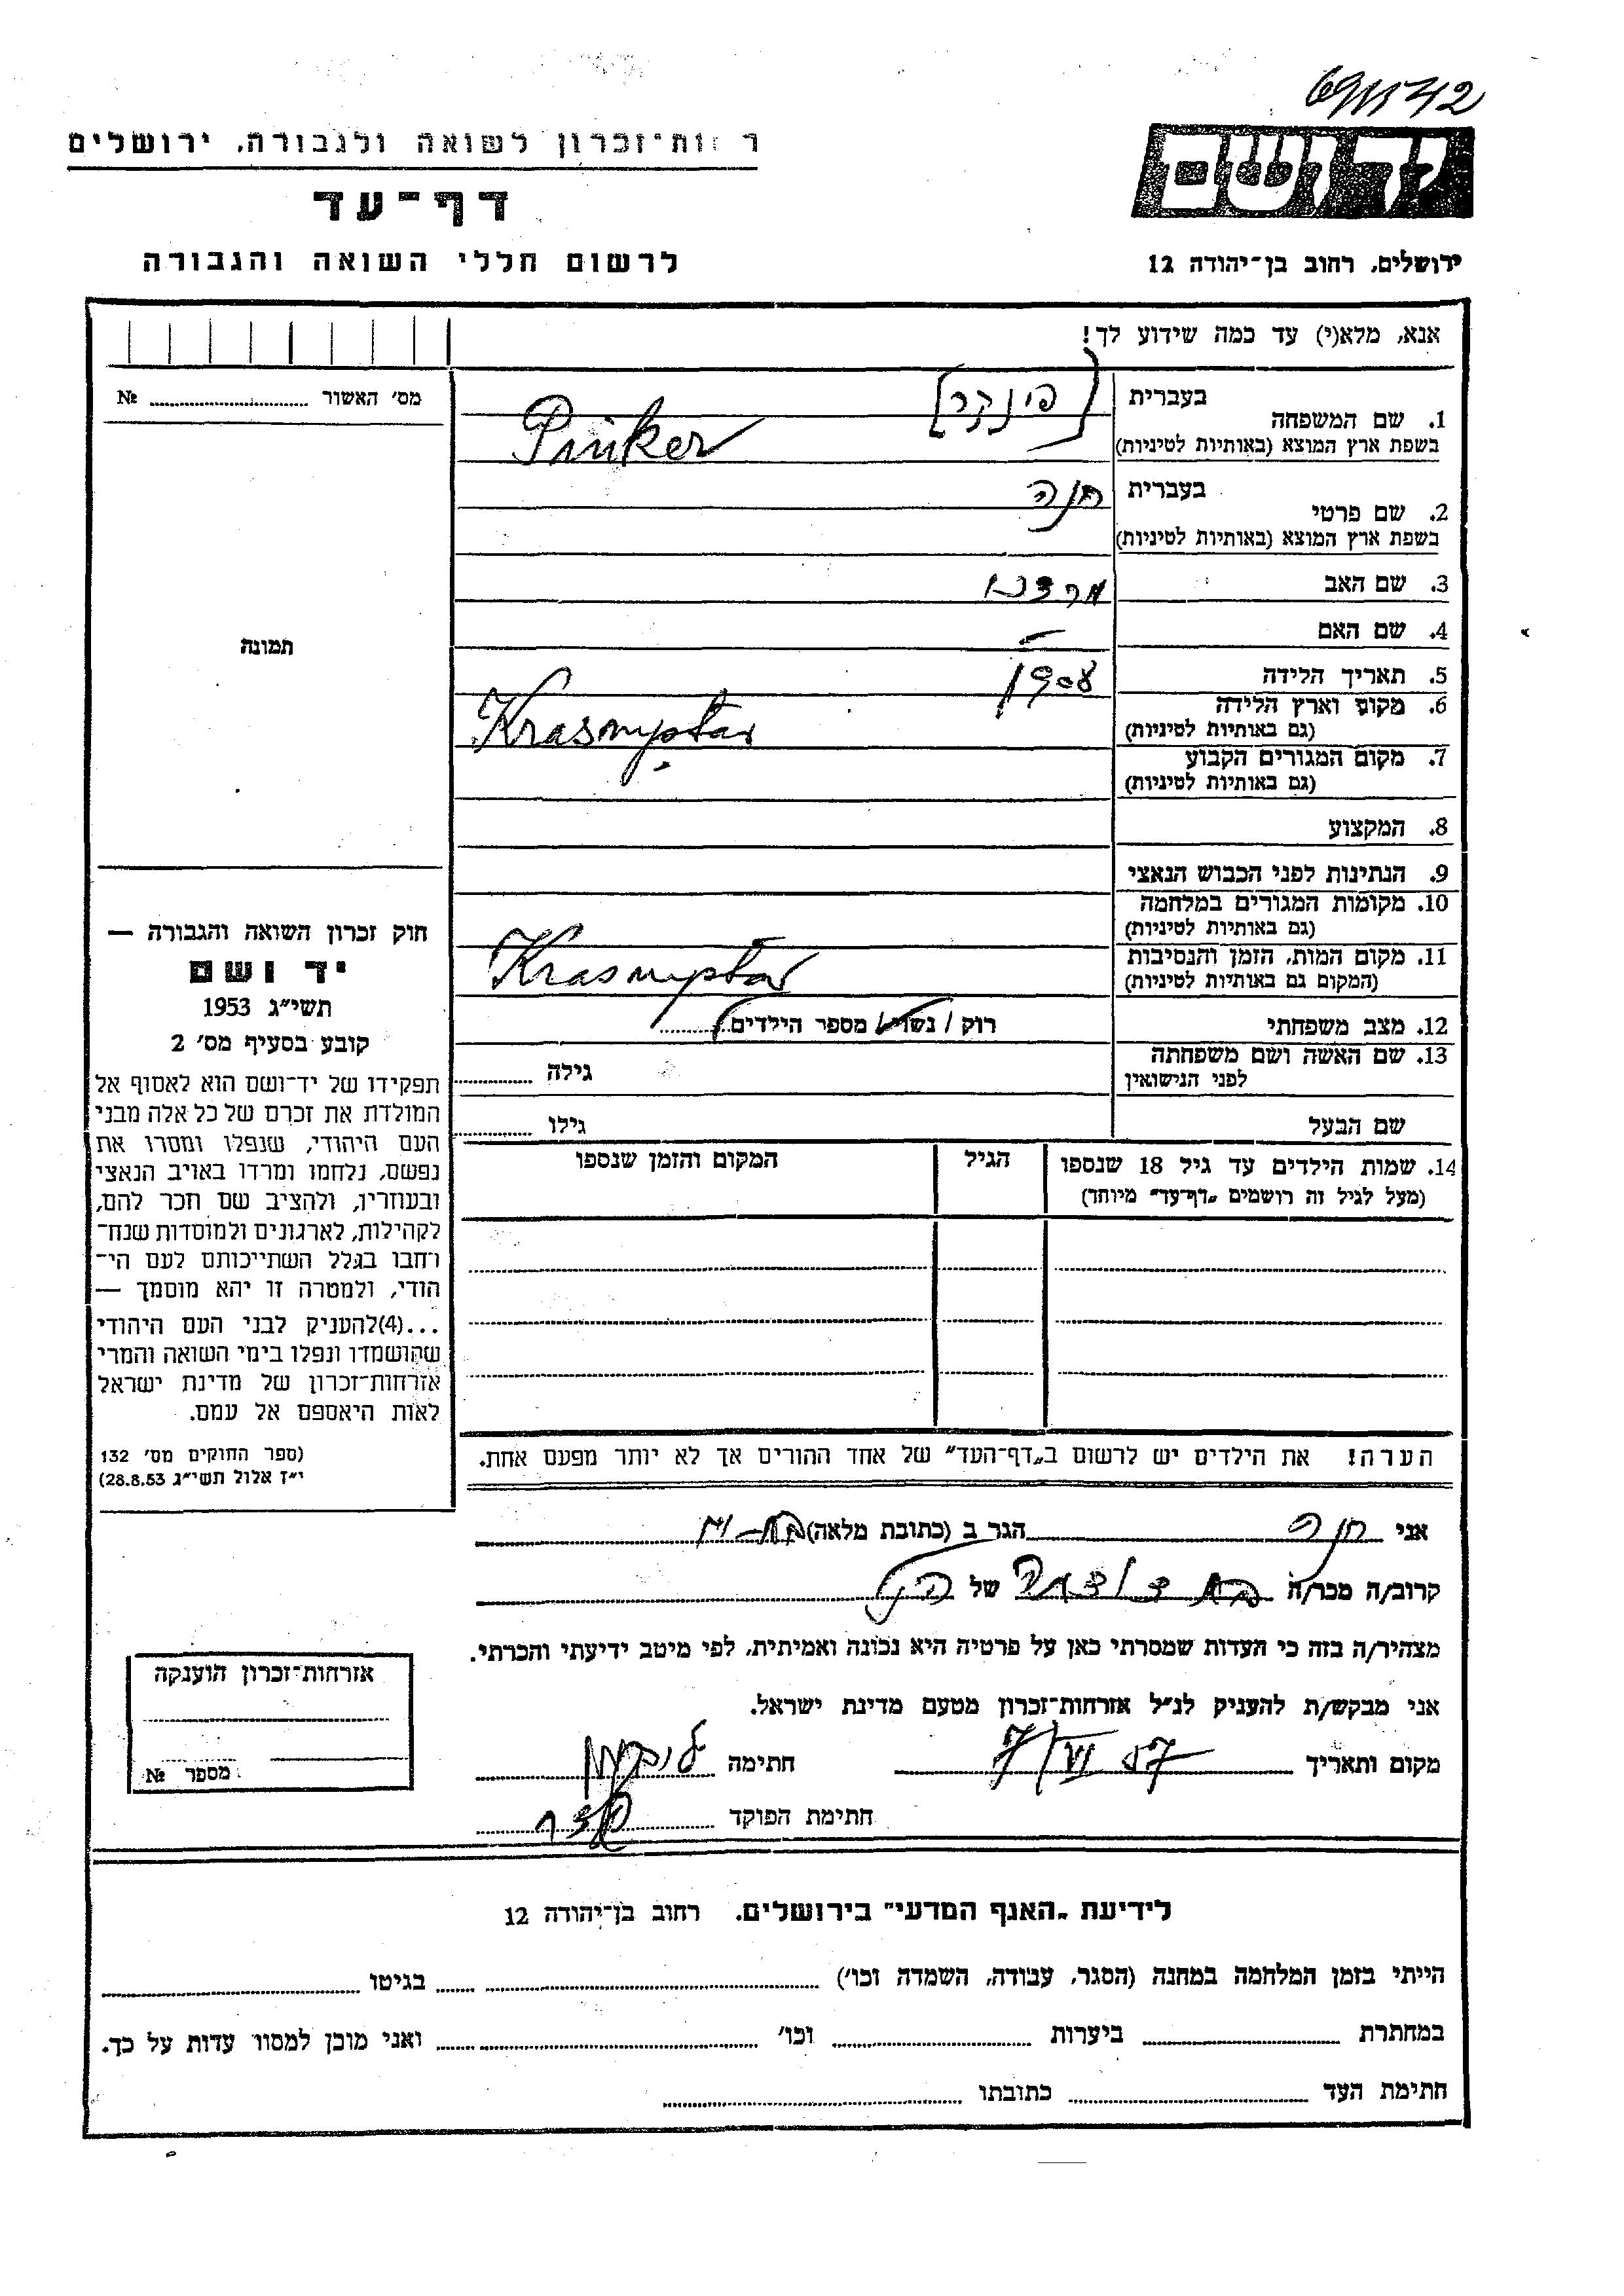 ר ות־זכרון לשואה ולגבורה. ירושלים
דף־עד
לרשום חללי השואה והגבורה
יד ושם
ירושלים, רחוב בן־יהודה 12
אנא, מלא(י) עד כמה שידוע לך!
מס׳ האשור № ....................
תמונה
1. שם המשפחה בעברית [פינקר]
בשפת ארץ המוצא (באותיות לטיניות) Pinker
2. שם פרטי בעברית חנה
בשפת ארץ המוצא (באותיות לטיניות)
3. שם האב
4. שם האם —
5. תאריך הלידה 1908
6. מקום וארץ הלידה
(גם באותיות לטיניות) Krasnystav
7. מקום המגורים הקבוע
(גם באותיות לטיניות)
8. המקצוע
9. הנתינות לפני הכבוש הנאצי
10. מקומות המגורים במלחמה
(גם באותיות לטיניות)
11. מקום המות, הזמן והנסיבות
(המקום גם באותיות לטיניות) Krasnystav
12. מצב משפחתי רוק / נשוי / מספר הילדים
13. שם האשה ושם משפחתה
לפני הנישואין גילה
שם הבעל גילו
14. שמות הילדים עד גיל 18 שנספו הגיל המקום והזמן שנספו
(מעל לגיל זה רושמים „דף־עד” מיוחד)
הערה! את הילדים יש לרשום ב„דף־העד” של אחד ההורים אך לא יותר מפעם אחת.
חוק זכרון השואה והגבורה —
יד ושם
תשי״ג 1953
קובע בסעיף מס׳ 2
תפקידו של יד־ושם הוא לאסוף אל
המולדת את זכרם של כל אלה מבני
העם היהודי, שנפלו ומסרו את
נפשם, נלחמו ומרדו באויב הנאצי
ובעוזריו, ולהציב שם וזכר להם,
לקהילות, לארגונים ולמוסדות שנח־
רחבו בגלל השתייכותם לעם הי־
הודי, ולמטרה זו יהא מוסמך —
...(4)להעניק לבני העם היהודי
שהושמדו ונפלו בימי השואה והמרי
אזרחות־זכרון של מדינת ישראל
לאות היאספם אל עמם.
(ספר החוקים מס׳ 132
י״ז אלול תשי״ג 28.8.53)
אני חנה הגר ב (כתובת מלאה)
קרוב/ה מכר/ה בת דודה של הנ״ל
מצהיר/ה בזה כי העדות שמסרתי כאן על פרטיה היא נכונה ואמיתית, לפי מיטב ידיעתי והכרתי.
אני מבקש/ת להעניק לנ״ל אזרחות־זכרון מטעם מדינת ישראל.
מקום ותאריך 7/VI 57 חתימה
חתימת הפוקד
אזרחות־זכרון הוענקה
מספר №
לידיעת „האגף המדעי” בירושלים. רחוב בן־יהודה 12
הייתי בזמן המלחמה במחנה (הסגר, עבודה, השמדה וכו׳) בגיטו
במחתרת ביערות וכו׳ ואני מוכן למסור עדות על כך.
חתימת העד כתובתו